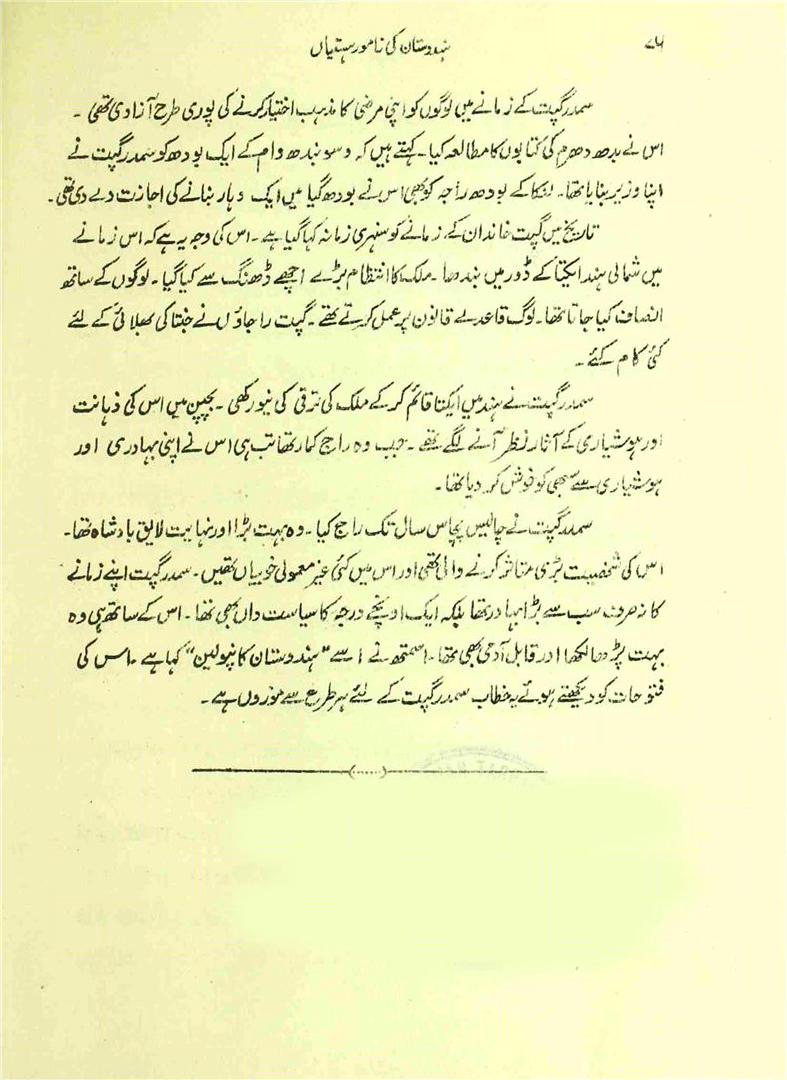 ۷۶ ہندوستان کی نامور ہستیاں
سمدر گپت کے زمانے میں لوگوں کو اپنی مرضی کا مذہب اختیار کرنے کی پوری طرح آزادی تھی ۔
اس نے بدھ دھرم کی کتابوں کا مطالعہ کیا۔ کہتے ہیں کہ وسوبندھو نام کے ایک بودھ کو سمدر گپت نے
اپنا وزیر بنایا تھا۔ لنکا کے بودھ راجہ کو بھی اس نے بودھ گیا میں ایک وہار بنانے کی اجازت دے دی تھی۔
تاریخ میں گپت خاندان کے زمانے کو سنہری زمانہ کہا گیا ہے۔ اس کی وجہ یہ ہے کہ اس زمانے
میں شمالی ہند ایکتا کے ڈور میں بندھا۔ ملک کا انتظام بڑے اچھے ڈھنگ سے کیا گیا۔ لوگوں کے ساتھ
انصاف کیا جاتا تھا۔ لوگ قاعدے قانون پر عمل کرتے تھے۔ گپت راجاؤں نے جنتا کی بھلائی کے لئے
کئی کام کئے۔
سمدر گپت نے ہند میں ایکتا قائم کر کے ملک کی ترقی کی نیو رکھی ۔ بچپن میں اس کی ذہانت
اور ہوشیاری کے آثار نظر آنے لگے تھے ۔ جب وہ راج کمار تھا تب ہی اس نے اپنی بہادری اور
ہوشیاری سے سبھی کو خوش کر دیا تھا۔
سمدر گپت نے چالیس پچاس سال تک راج کیا۔ وہ بہت بڑا اور نہایت لایق بادشاہ تھا۔
اس کی شخصیت بڑی متاثر کرنے والی تھی اور اس میں کئی غیر معمولی خوبیاں تھیں۔ سمدر گپت اپنے زمانے
کا نہ صرف سب سے بڑا بہادر تھا بلکہ ایک اونچے درجہ کا سیاست داں بھی تھا۔ اس کے ساتھ ہی وہ
بہت پڑھا لکھا اور قابل آدمی بھی تھا۔ اسمتھ نے اسے "ہندوستان کا نپولین" کہا ہے۔ اس کی
فتوحات کو دیکھتے ہوئے یہ خطاب سمدر گپت کے لئے ہر طرح سے موزوں ہے۔